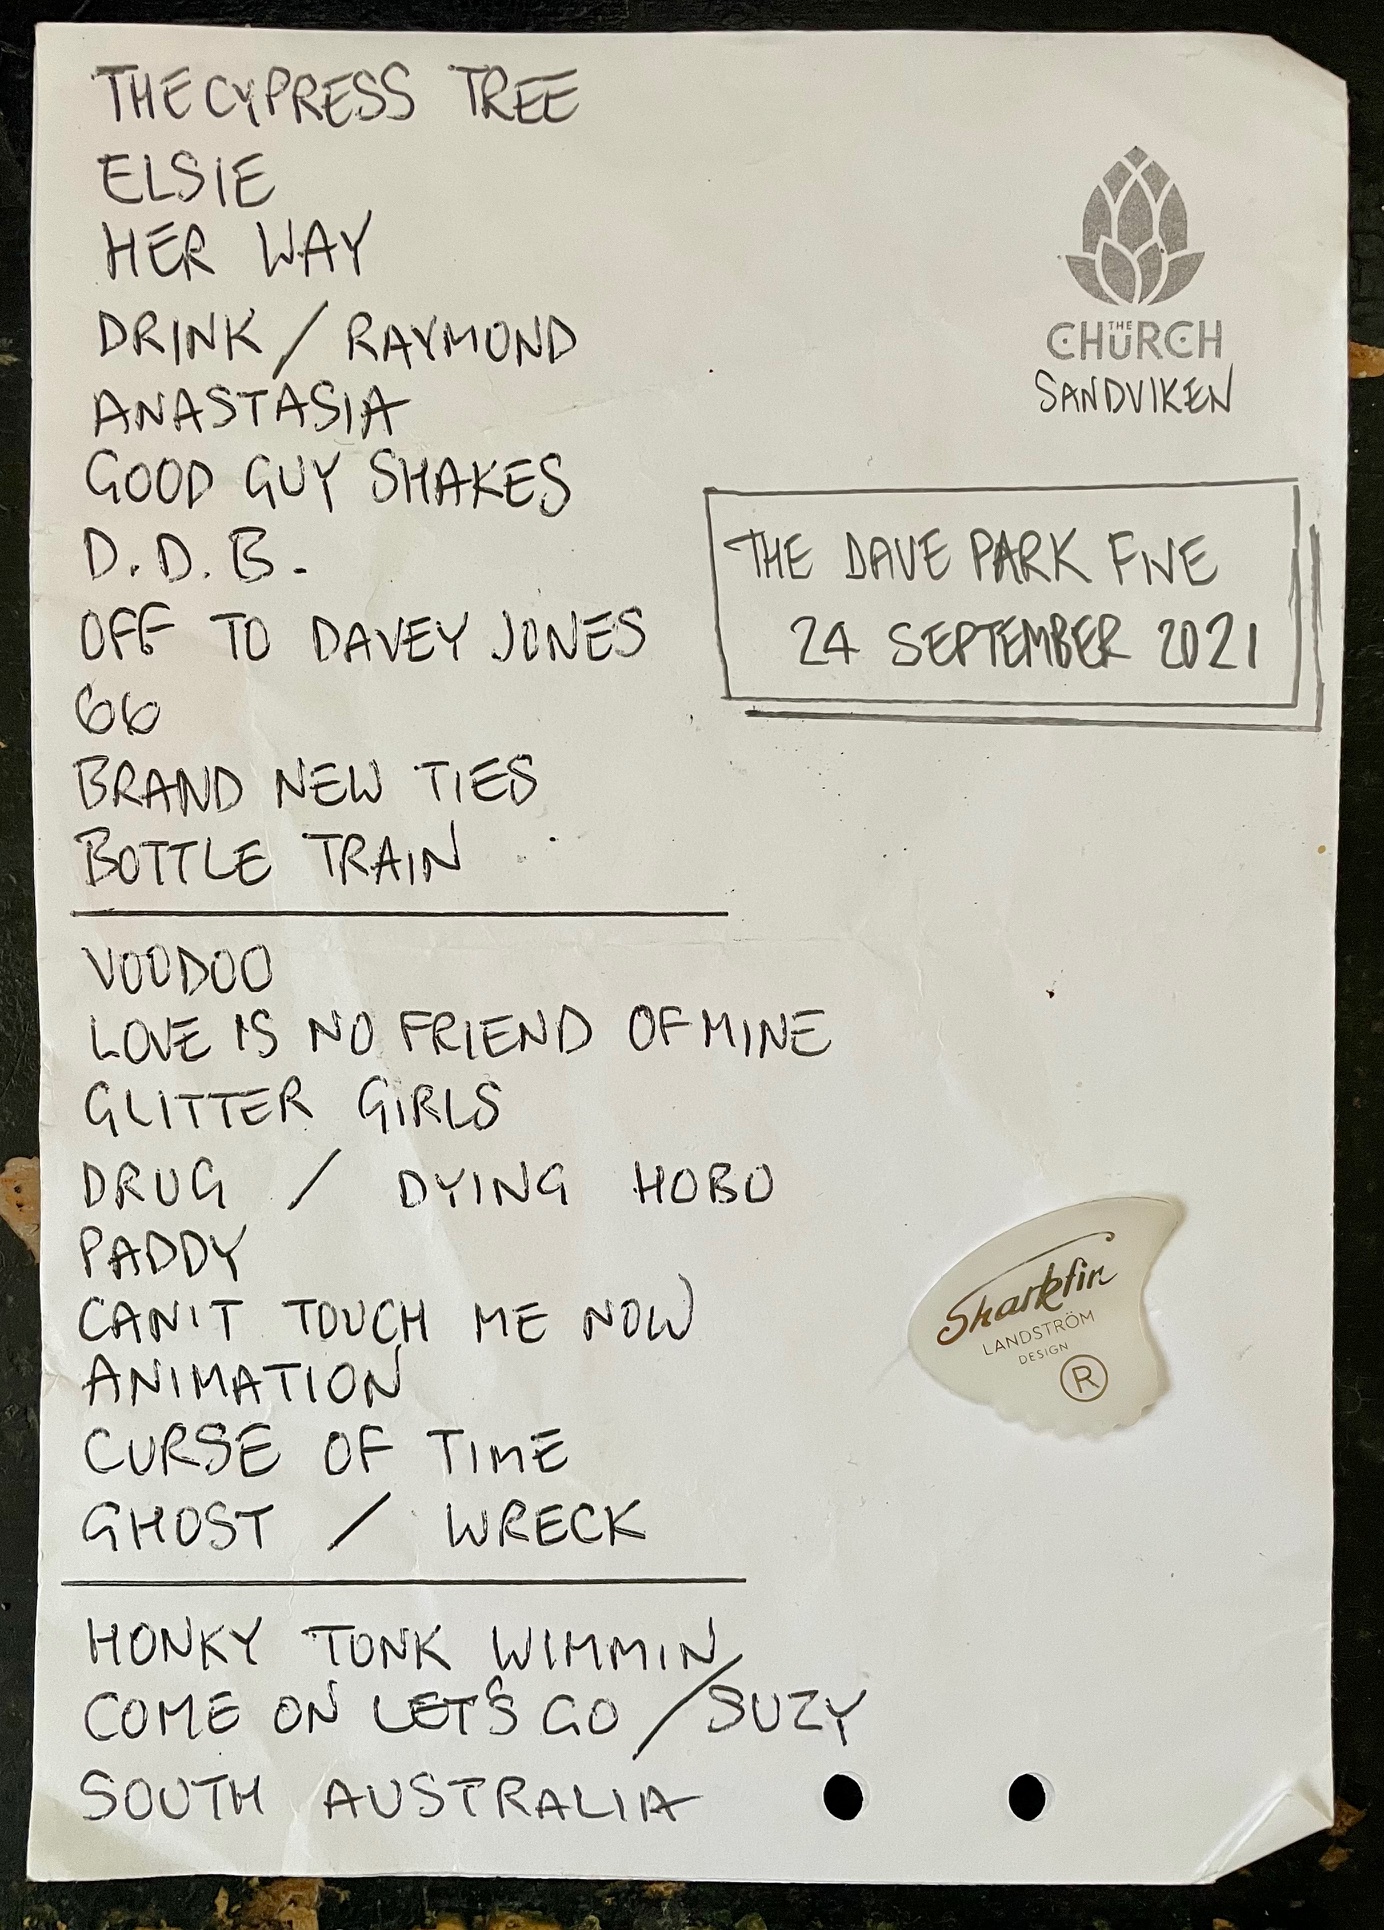 THE CYPRESS TREE
ELSIE
HER WAY
DRINK / RAYMOND
ANASTASIA
GOOD GUY SHAKES
D.D.B.
OFF TO DAVEY JONES
66
BRAND NEW TIES
BOTTLE TRAIN
VOODOO
LOVE IS NO FRIEND OF MINE
GLITTER GIRLS
DRUG / DYING HOBO
PADDY
CAN'T TOUCH ME NOW
ANIMATION
CURSE OF TIME
GHOST / WRECK
HONKY TONK WIMMIN
COME ON LET'S GO / SUZY
SOUTH AUSTRALIA
THE CHURCH
SANDVIKEN
THE DAVE PARK FIVE
24 SEPTEMBER 2021
Sharkfin
LANDSTRÖM
DESIGN
R